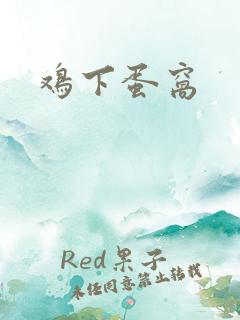 鸡下蛋窝
Red果子
未经同意禁止转载